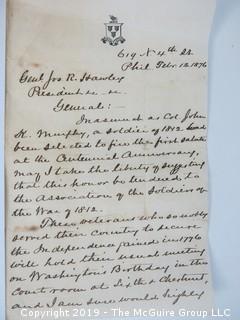 619 N 4th St
Phil Febr. 12. 1876
Genl Jos R. Hawley
President &c &c
General:—
Inasmuch as Col John
K. Murphy, a Soldier of 1812 had
been selected to fire the first salute
at the Centennial Anniversary,
may I take the liberty of suggesting
that this honor be tendered, to
the Association of the Soldiers of
the War of 1812.
These veterans who so nobly
served their Country to secure
the Independence gained in 1776
will hold their usual meeting
on Washington's Birthday in the
Court room at Sixth & Chestnut,
and I am sure would highly
Copyright 2019 - TimePhotos.com